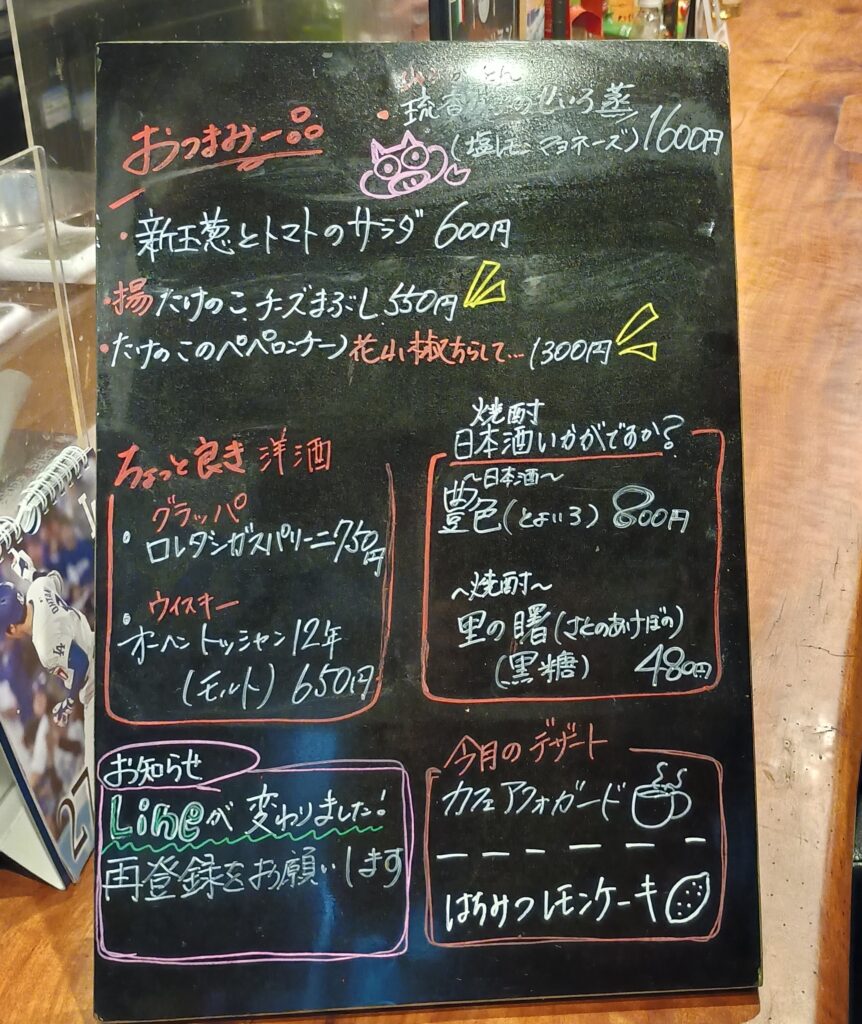 おつまみ一品
りゅうかとん
・琉香豚のせいろ蒸
(塩レモンマヨネーズ) 1600円
・新玉葱とトマトのサラダ 600円
・揚たけのこ チーズまぶし 550円
・たけのこのペペロンチーノ 花山椒ちらして... 1300円
ちょっと良き 洋酒
グラッパ
・ロレダンガスパリーニ 750円
ウイスキー
・オーヘントッシャン12年
(モルト) 650円
焼酎
日本酒いかがですか?
〜日本酒〜
豊色(とよいろ) 800円
〜焼酎〜
里の曙(さとのあけぼの)
(黒糖) 480円
お知らせ
Lineが変わりました!
再登録をお願いします
今月のデザート
カフェアフォガード
はちみつレモンケーキ
27